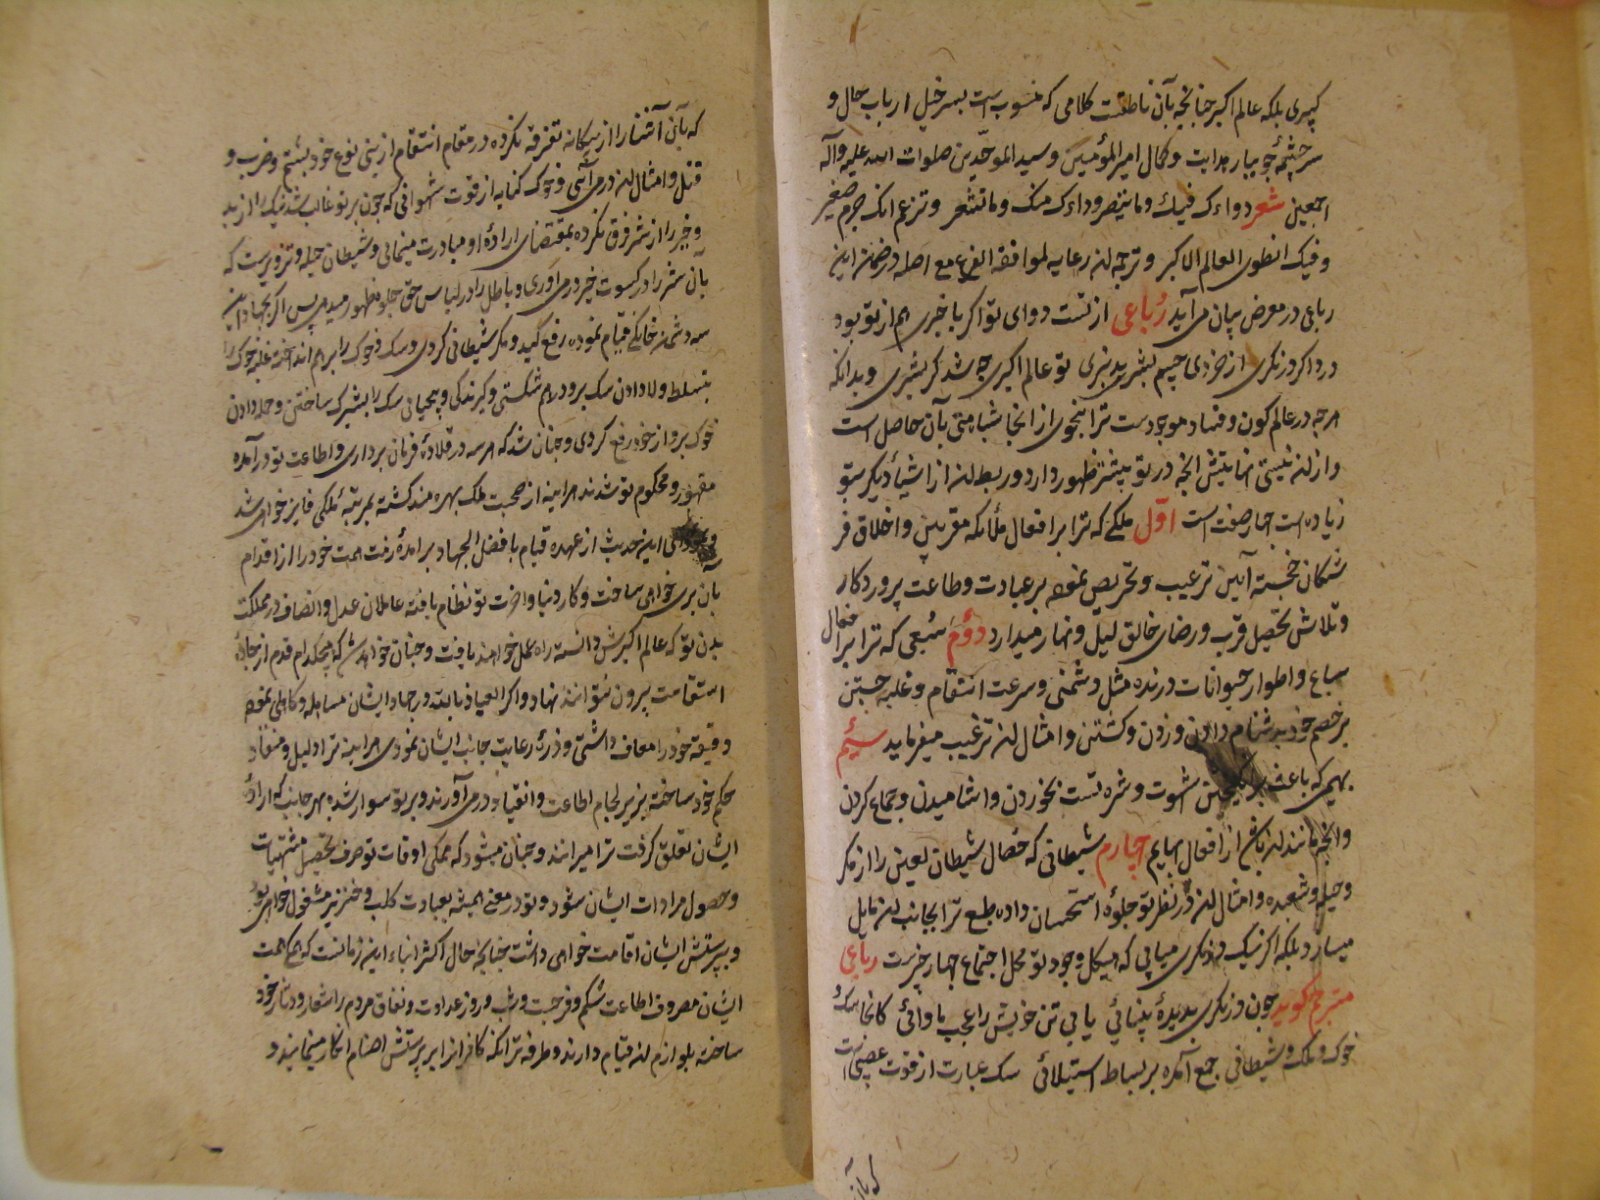 کبیری بلکه عالم اکبر چنانچه بآن ناطقست کلامی که منسوب است بسر خیل ارباب حال و
سرچشمهٔ جویبار هدایت و کمال امیر المؤمنین و سید الموحدین صلوات الله علیه وآله
اجمعین شعر دواءك فيك وما تبصر وداءك منك وما تشعر وتزعم انك جرم صغير
وفيك انطوى العالم الاكبر و ترجمه آن رعایه لموافقة الفرع مع اصله در ضمن این
رباعی در معرض بیان می آید رباعی از تست دوای تو اگر با خبری هم از تو بود
درد اگر وزنگری از خردی جسم بشری بد نبری تو عالم اکبری چه شد گر بشری و بدانکه
هر چه در عالم کون و فساد موجودست ترا بنحوی از انحا شباهتی بآن حاصل است
واز آن نیستی نهایتش آنچه در تو بیشتر ظهور دارد و ربط آن از اشیاء دیگر بتو
زیاده است چهار صفت است اوّل ملکی که ترا بر افعال ملائکه مقربین و اخلاق فر
شتگان خجسته آیین ترغیب و تحریص نموده بر عبادت و طاعت پروردگار
و تلاش تحصیل قرب و رضای خالق لیل و نهار میدارد دوّم سبعی که ترا بر افعال
سباع و اطوار حیوانات درنده مثل دشمنی و سرعت انتقام و غلبه جستن
بر خصم خود بدشنام دادن و زدن و کشتن و امثال آن ترغیب میفرماید سیّم
بهیمی که باعث بر انگیختن شهوت و شره تست بخوردن و آشامیدن و جماع کردن
وآنچه مانند آن باشد از افعال بهایم چهارم شیطانی که خصال شیطان لعین را از مکر
و حیله و شعبده و امثال آن در نظر تو جلوهٔ استحسان داده طبع ترا بجانب آن مایل
میسازد بلکه اگر نیک در نگری مییابی که هیکل وجود تو محل اجتماع چهار چیزست رباعی
مترجم گوید چون در نگری بدیدهٔ بینائی یابی تن خویش را عجب ماوائی کانجا سگ و
خوک و ملک و شیطانی جمع آمده بر بساط استیلائی سگ عبارت از قوت غضبی است
که بآن
که بآن آشنا را از بیگانه تفرقه نکرده در مقام انتقام از بنی نوع خود بشتم و ضرب و
قتل و امثال آن در می آئی و خوک کنایه از قوت شهوانی که چون بر تو غالب شد نیک را از بد
و خیر را از شر فرق نکرده بمقتضای ارادهٔ او مبادرت مینمائی و شیطان حیله و تزویرست که
بآن شر را در کسوت خیر در می آوری و باطل را در لباس حق جلوه ظهور میدهی پس اگر بجهاد این
سه دشمن خانگی قیام نموده رفع کید و مکر شیطانی کردی و سگ و خوک را بر هم انداخته غلبه خوک را
بتسلط و لا دادن سگ برو درهم شکستی و گیرندگی و بیحیائی سگ را بشرک ساختن و حمله دادن
خوک برو از خود رفع کردی و چنان شد که هر سه در قلادهٔ فرمان برداری و اطاعت تو در آمده
مقهور و محکوم تو شدند هر آینه از صحبت ملک بهره مند گشته بمرتبهٔ ملکی فایز خواهی شد
این حدیث از عهده قیام بافضل الجهاد بر آمدهٔ رخت همت خود را از اقدام
بآن بری خواهی ساخت و کار دنیا و آخرت تو نظام یافته عاملان عدل و انصاف در مملکت
بدن تو که عالم اکبرش دانسته راه عمل خواهند یافت و چنان خواهد شد که هیچکدام قدم از جادهٔ
استقامت بیرون نتوانند نهاد و اگر العیاذ بالله در جهاد ایشان مساهله و کاهلی نموده
دقیقه خود را معاف داشتی و ذرهٔ رعایت جانب ایشان نمودی هر آینه ترا دلیل و منقاد
حکم خود ساخته بزیر لجام اطاعت و انقیاد در می آورند و بر تو سوار شده بهر جانب که ارادهٔ
ایشان تعلق گرفت ترا میرانند و چنان میشود که همگی اوقات تو صرف تحصیل مشتهیات
و حصول مرادات ایشان شود و تو در معنی همیشه بعبادت کلب و خنزیر مشغول خواهی بود
و بپرستش ایشان اقامت خواهی داشت چنانچه حال اکثر ابناء این زمانست که همگی همت
ایشان مصروف اطاعت شکم و فرجست و شب و روز عداوت و نفاق مردم را شعار و دثار خود
ساخته بلوازم آن قیام دارند و طرفه تر آنکه کافران را بر پرستش اصنام انکار مینمایند و